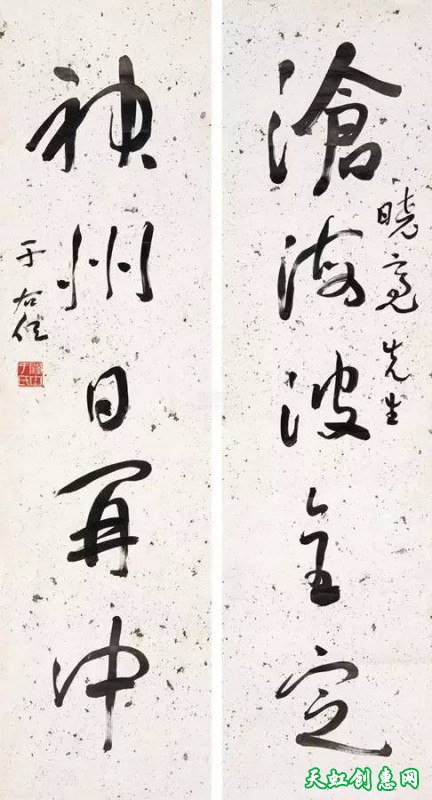 滄海波全定
晓亮先生
神州日再中
于右任
天虹创意网